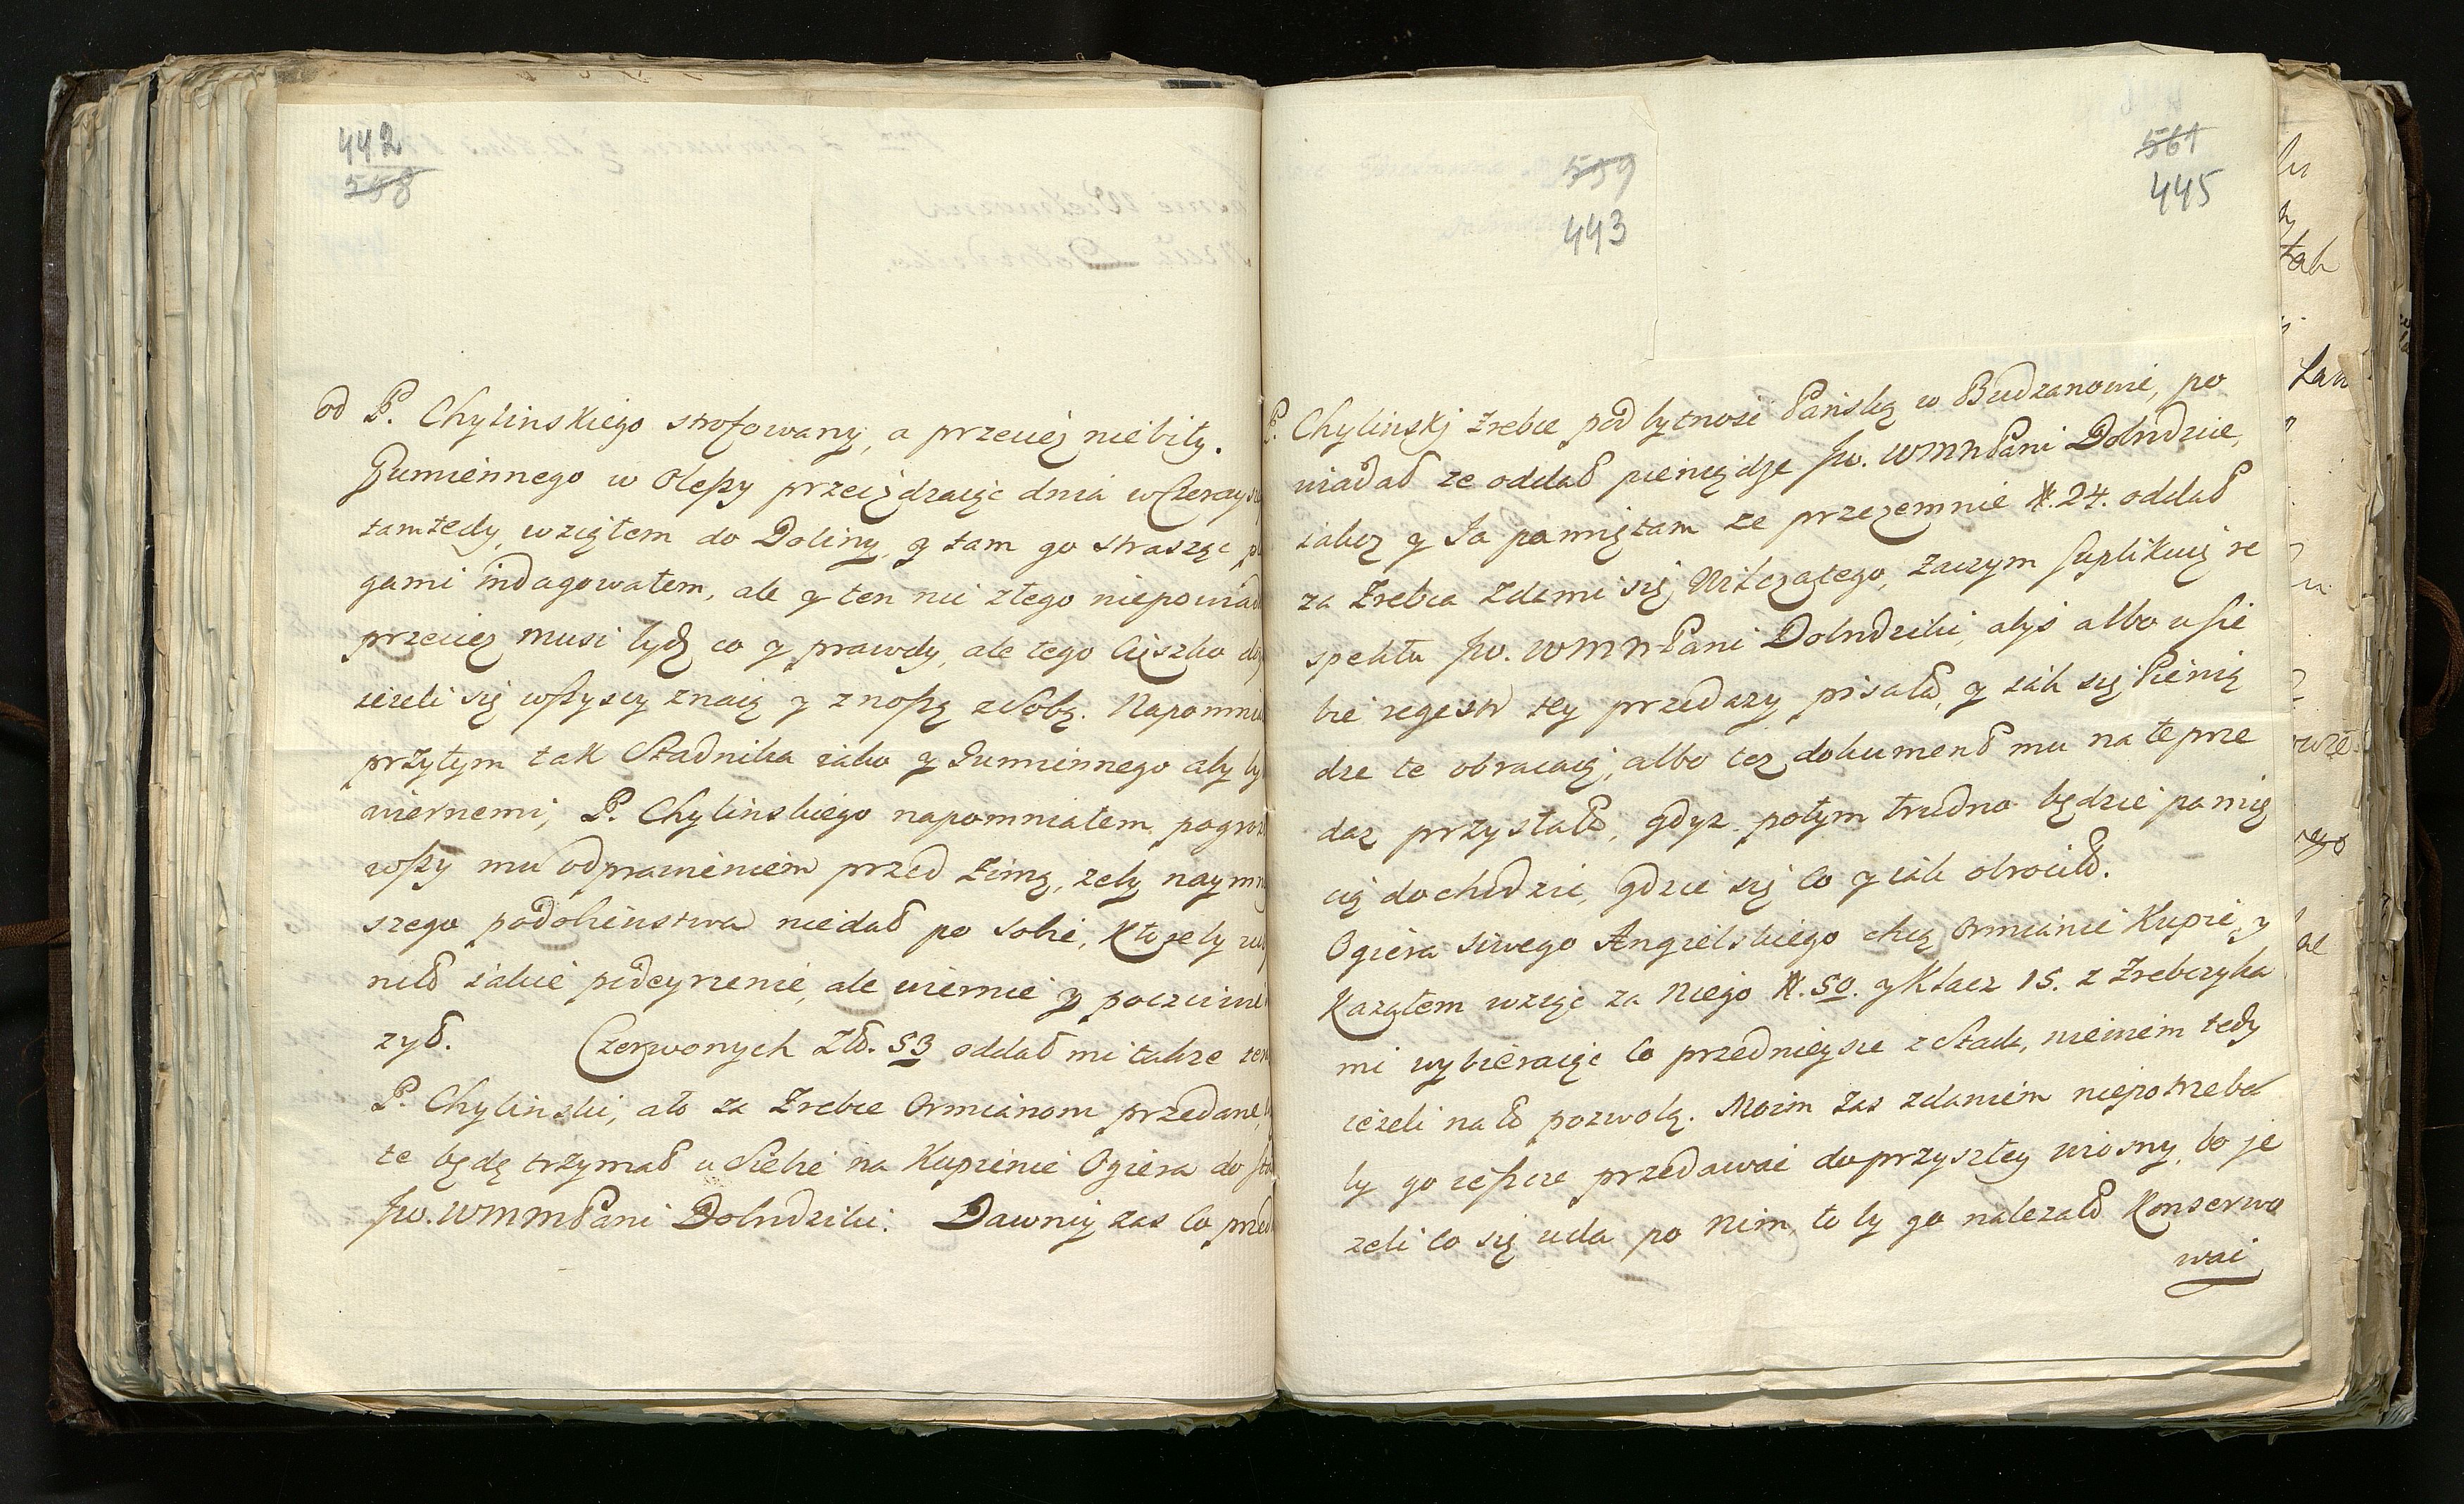 442
558
od P. Chylinskiego strofowany, a przeciez niebity.
Gumiennego w Olexy przeiezdzaiąc dnia wczerayszego
tamtedy, wziąłem do Doliny, y tam go strasząc
gami indagowałem, ale y ten nic złego niepowiada
przeciez musi bydź co y prawdy, ale tego cięszko
ieżeli się wszyscy znaią y znoszą z sobą. Napomnia
przytym tak Stadnika iako y Gumiennego aby by
wiernemi, P. Chylinskiego napomniałem pogrozi
wszy mu odprawieniem przed Zimą, zeby naymn
szego podobieństwa niedał po sobie, ktoreby
niło iakie podeyrzenie, ale wiernie y poczciwie
zył. Czerwonych Zło. 53 oddał mi takze ten
P. Chylinski, ato za Zrebce Ormianom przedane,
te będę trzymał u Siebie na Kupienie Ogiera do
Jw. WMMPani Dobrodziki. Dawniy zas co przed
559
443
561
445
P. Chylinskj zrebce pod bytnosć Pańską w Budzanowie, po
wiadał ze oddał pieniądze Jw. WMMPani Dobrodzice,
iakoz y Ja pamiętam ze przezemnie #. 24. oddał
za Zrebca zdami się Wilczatego, zaczym suplikuię re
spektu Jw. WMMPani Dobrodziki, abyś albo u sie
bie regestr tey przedazy pisała, y iak się Pienią
dze te obracaią, albo tez dokument mu na te prze
daz przystała, gdyz potym trudno będzie pamię
cią dochodzic, gdzie się co y iak obrociło.
Ogiera siwego Angielskiego chcą Ormianie Kupic, y
Kazałem wziąc za Niego #. 50. y Klacz 15. z Zrebczyka
mi wybieraiąc co przednieysze z Stada, niewiem tedy
ieżeli na to pozwolą. Moim zas zdaniem niepotrzeba
by go ieszcze przedawać do przyszłey wiosny, bo je
zeli co się uda po Nim, to by go nalezało Konserwo
wać